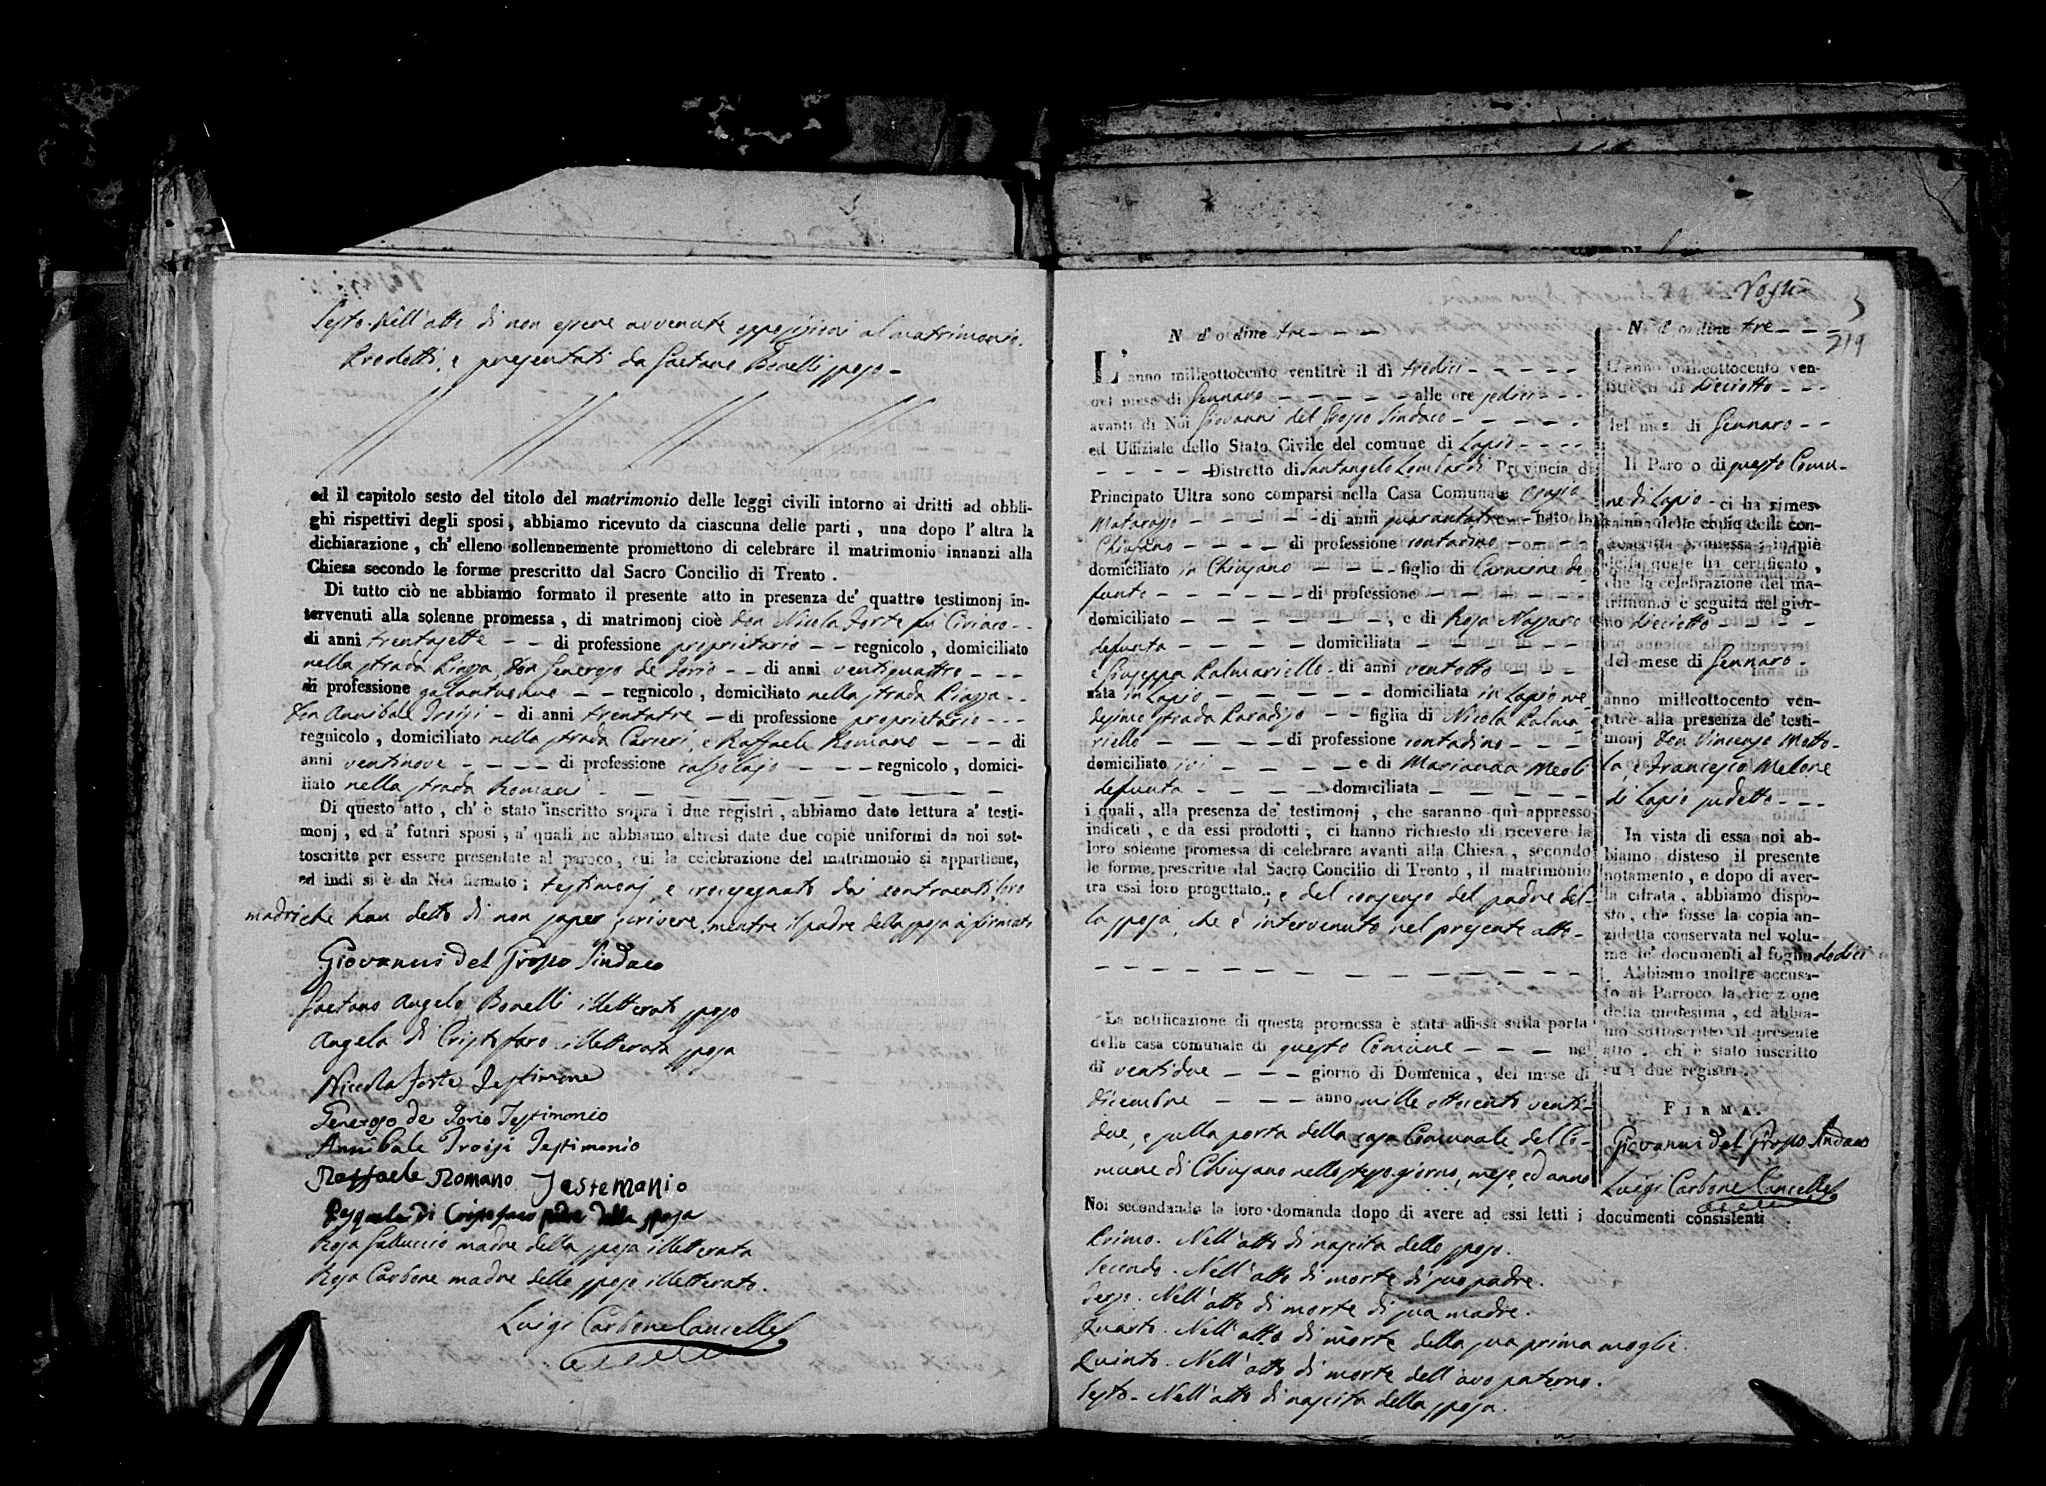 Sesto. Nell'atto di non essere avvenute opposizioni al matrimonio.
Predetti, e presentati da Gaetano Bonelli sposo -
ed il capitolo sesto del titolo del matrimonio delle leggi civili intorno ai dritti ad obbli-
ghi rispettivi degli sposi, abbiamo ricevuto da ciascuna delle parti, una dopo l'altra la
dichiarazione, ch'elleno sollennemente promettono di celebrare il matrimonio innanzi alla
Chiesa secondo le forme prescritto dal Sacro Concilio di Trento.
Di tutto ciò ne abbiamo formato il presente atto in presenza de' quattro testimonj in-
tervenuti alla solenne promessa, di matrimonj cioè Don Nicola Forte fu Ciriaco - -
di anni trentasette - - di professione proprietario - - regnicolo, domiciliato
nella strada Piazza, Don Generoso de Iorio - - di anni ventiquattro - - -
di professione galantuomo - - regnicolo, domiciliato nella strada Piazza - -
Don Annibale Troisi - di anni trentatre - di professione proprietario - - -
regnicolo, domiciliato nella strada Carrieri, e Raffaele Romano - - - di
anni ventinove - - - - di professione calzolajo - - - - regnicolo, domici-
liato nella strada Romani - - - - - - - - - -
Di questo atto, ch'è stato inscritto sopra i due registri, abbiamo dato lettura a' testi-
monj, ed a' futuri sposi, a' quali ne abbiamo altresì date due copie uniformi da noi sot-
toscritte per essere presentate al paroco, cui la celebrazione del matrimonio si appartiene,
ed indi si è da Noi firmato; testimonj, e crocesegnato dai contraenti, loro
madri che han detto di non saper scrivere, mentre il padre della sposa à firmato
Giovanni del Grosso Sindaco
Gaetano Angelo Bonelli illetterato sposo
Angela di Cristofaro illetterata sposa
Niccola Forte Testimone
Generoso de Iorio Testimonio
Annibale Troisi Testimonio
Raffaele Romano Testemanio
Pasquale di Cristofaro padre della sposa
Rosa Galluccio madre della sposa illetterata
Rosa Carbone madre dello sposo illetterato.
Luigi Carbone Cancelle
3
219
N. d'ordine tre - - -
L'anno milleottocento ventitrè il dì tredici - - - - -
del mese di Gennaro - - - - - alle ore sedici - - -
avanti di Noi Giovanni del Grosso Sindaco - - - - -
ed Uffiziale dello Stato Civile del comune di Lapio - - - -
- - - - - Distretto di Santangelo Lombardi Provincia di
Principato Ultra sono comparsi nella Casa Comunale Orazio
Matarazzo - - - - - - di anni quarantatre - - nato in
Chiusano - - - - - di professione contadino - - - -
domiciliato in Chiusano - - - - figlio di Carmine de
funto - - - - - - di professione - - - - - -
domiciliato - - - - - - -, e di Rosa Nazzaro
defunta - - - - - domiciliata - - - - - -
e Giuseppa Palmariello di anni ventotto - - -
nata in Lapio - - - - - domiciliata in Lapio me
desimo strada Paradiso - - figlia di Nicola Palma
riello - - - - di professione contadino - - -
domiciliato ivi - - - - - e di Marianna Meoli
defunta - - - - - domiciliata - - - - - -
i quali, alla presenza de' testimonj, che saranno quì appresso
indicati, e da essi prodotti, ci hanno richiesto di ricevere la
loro solenne promessa di celebrare avanti alla Chiesa, secondo
le forme prescritte dal Sacro Concilio di Trento, il matrimonio
tra essi loro progettato; e del consenso del padre del-
la sposa, che è intervenuto nel presente atto -
La notificazione di questa promessa è stata affissa sulla porta
della casa comunale di questo Comune - - - nel
dì ventidue - - - giorno di Domenica, del mese di
dicembre - - - anno mille ottocento venti-
due, e sulla porta della casa Comunale del Co-
mune di Chiusano nello stesso giorno, mese, ed anno
Noi secondando la loro domanda dopo di avere ad essi letti i documenti consistenti
Primo. Nell'atto di nascita dello sposo.
Secondo. Nell'atto di morte di suo padre.
Terzo. Nell'atto di morte di sua madre.
Quarto. Nell'atto di morte della sua prima moglie.
Quinto. Nell'atto di morte dell'avo paterno.
Sesto. Nell'atto di nascita della sposa.
N. d'ordine tre - - -
L'anno milleottocento ven-
titrè il dì dieciotto - - -
del mese di Gennaro - -
Il Paroco di questo Comu-
ne di Lapio - ci ha rimes-
sa una delle copie della con-
troscritta promessa; in piè
della quale ha certificato,
che la celebrazione del ma-
trimonio è seguita nel gior-
no dieciotto - - - -
del mese di Gennaro -
anno milleottocento ven-
titrè alla presenza de' testi-
monj Don Vincenzo Motto-
la, e Francesco Melone
di Lapio sudetto - - -
In vista di essa noi ab-
biamo disteso il presente
notamento, e dopo di aver-
la cifrata, abbiamo dispo-
sto, che fosse la copia an-
zidetta conservata nel volu-
me de' documenti al foglio dodici
Abbiamo inoltre accusa-
to al Parroco la ricezione
della medesima, ed abbia-
mo sottoscritto il presente
atto, ch'è stato inscritto
su i due registri.
FIRMA.
Giovanni del Grosso Sindaco
Luigi Carbone Cancelle